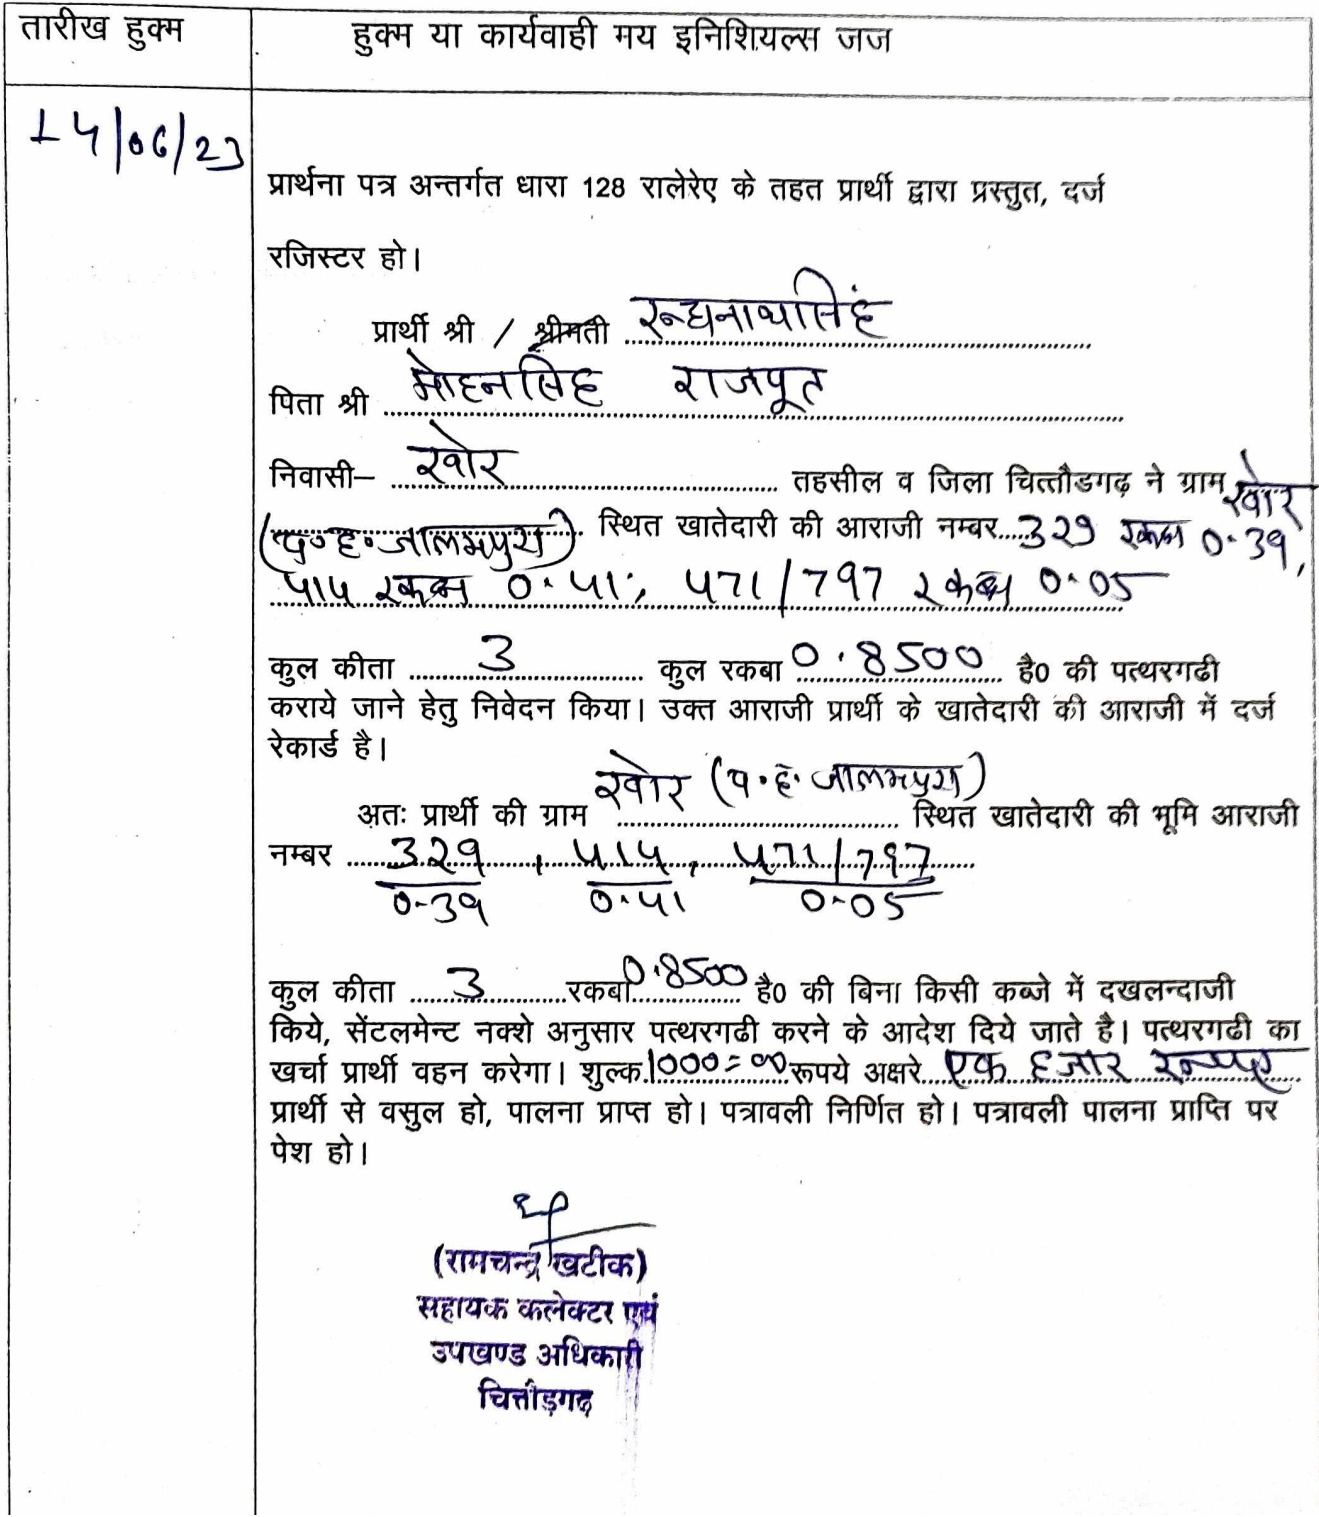 तारीख हुक्म
हुक्म या कार्यवाही मय इनिशियल्स जज
14/06/23
प्रार्थना पत्र अन्तर्गत धारा 128 रालेरेए के तहत प्रार्थी द्वारा प्रस्तुत, दर्ज
रजिस्टर हो।
प्रार्थी श्री / श्रीमती रूघनाथसिंह
पिता श्री मोहनसिंह राजपूत
निवासी– खोर तहसील व जिला चित्तौडगढ़ ने ग्राम खोर
(प.ह.जालमपुरा) स्थित खातेदारी की आराजी नम्बर 329 रकबा 0.39,
414 रकबा 0.41, 471/797 रकबा 0.05
कुल कीता 3 कुल रकबा 0.8500 है0 की पत्थरगढी
कराये जाने हेतु निवेदन किया। उक्त आराजी प्रार्थी के खातेदारी की आराजी में दर्ज
रेकार्ड है।
अतः प्रार्थी की ग्राम खोर (प.ह.जालमपुरा) स्थित खातेदारी की भूमि आराजी
नम्बर 329, 414, 471/797
0.39 0.41 0.05
कुल कीता 3 रकबा 0.8500 है0 की बिना किसी कब्जे में दखलन्दाजी
किये, सेंटलमेन्ट नक्शे अनुसार पत्थरगढी करने के आदेश दिये जाते है। पत्थरगढी का
खर्चा प्रार्थी वहन करेगा। शुल्क 1000=00 रूपये अक्षरे एक हजार रूपए
प्रार्थी से वसुल हो, पालना प्राप्त हो। पत्रावली निर्णित हो। पत्रावली पालना प्राप्ति पर
पेश हो।
(रामचन्द्र खटीक)
सहायक कलेक्टर एवं
उपखण्ड अधिकारी
चित्तौड़गढ़